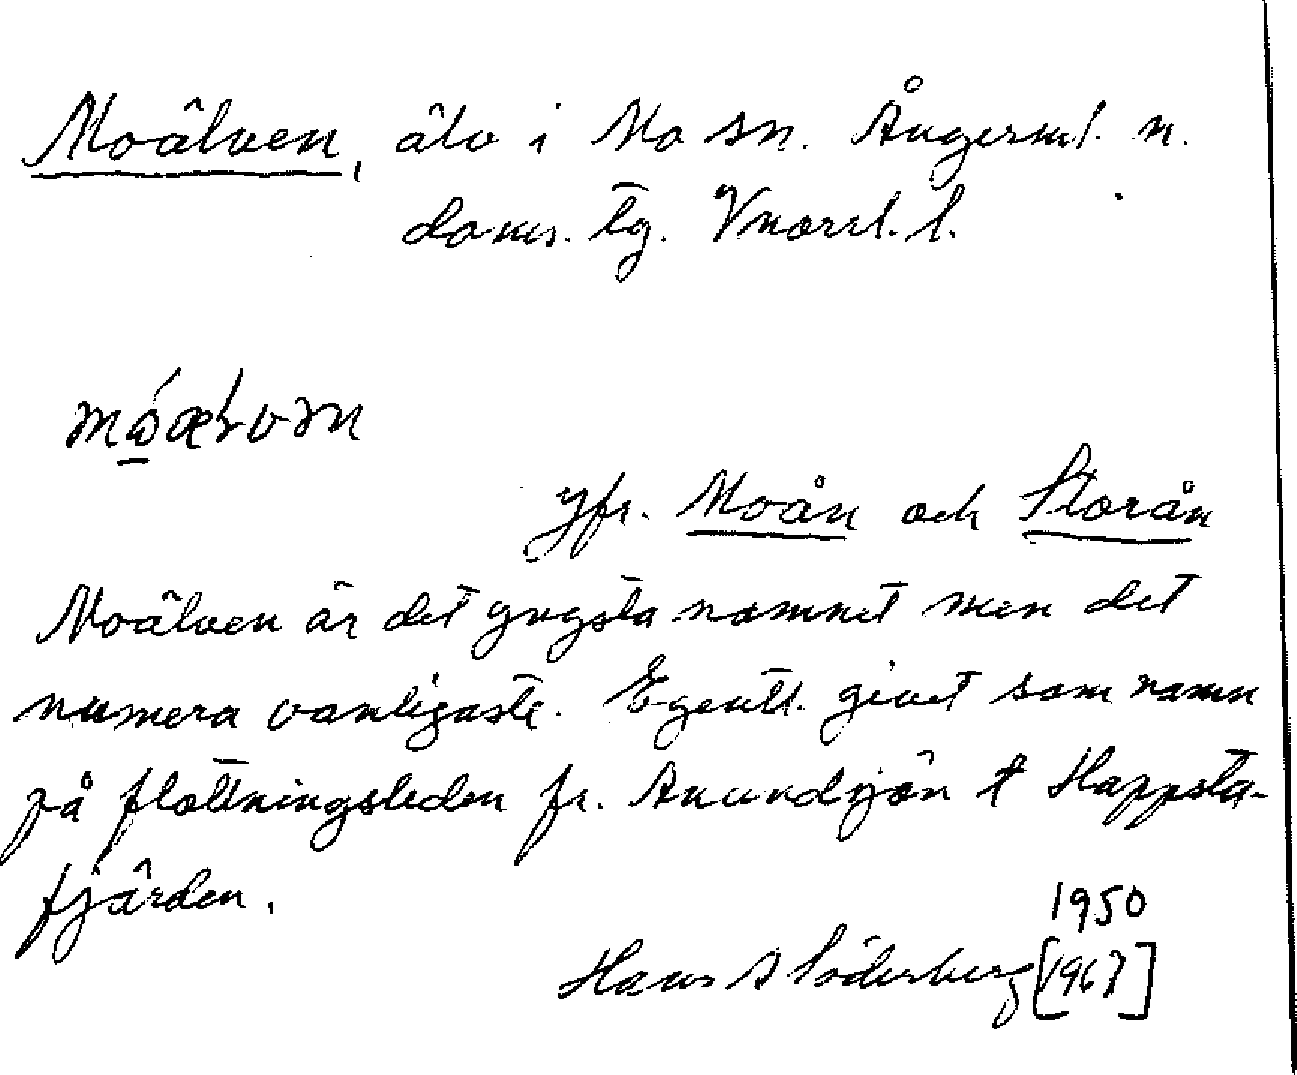 Moälven, älv i Mo sn. Ångerml. n.
doms. tg. Vnorrl. l.
jfr. Moån och Storån
Moälven är det yngsta namnet men det
numera vanligaste. Egentl. givet som namn
på flottningsleden fr. Anundsjön t Happsta-
fjärden.
1950
Hans A Söderberg [1967]